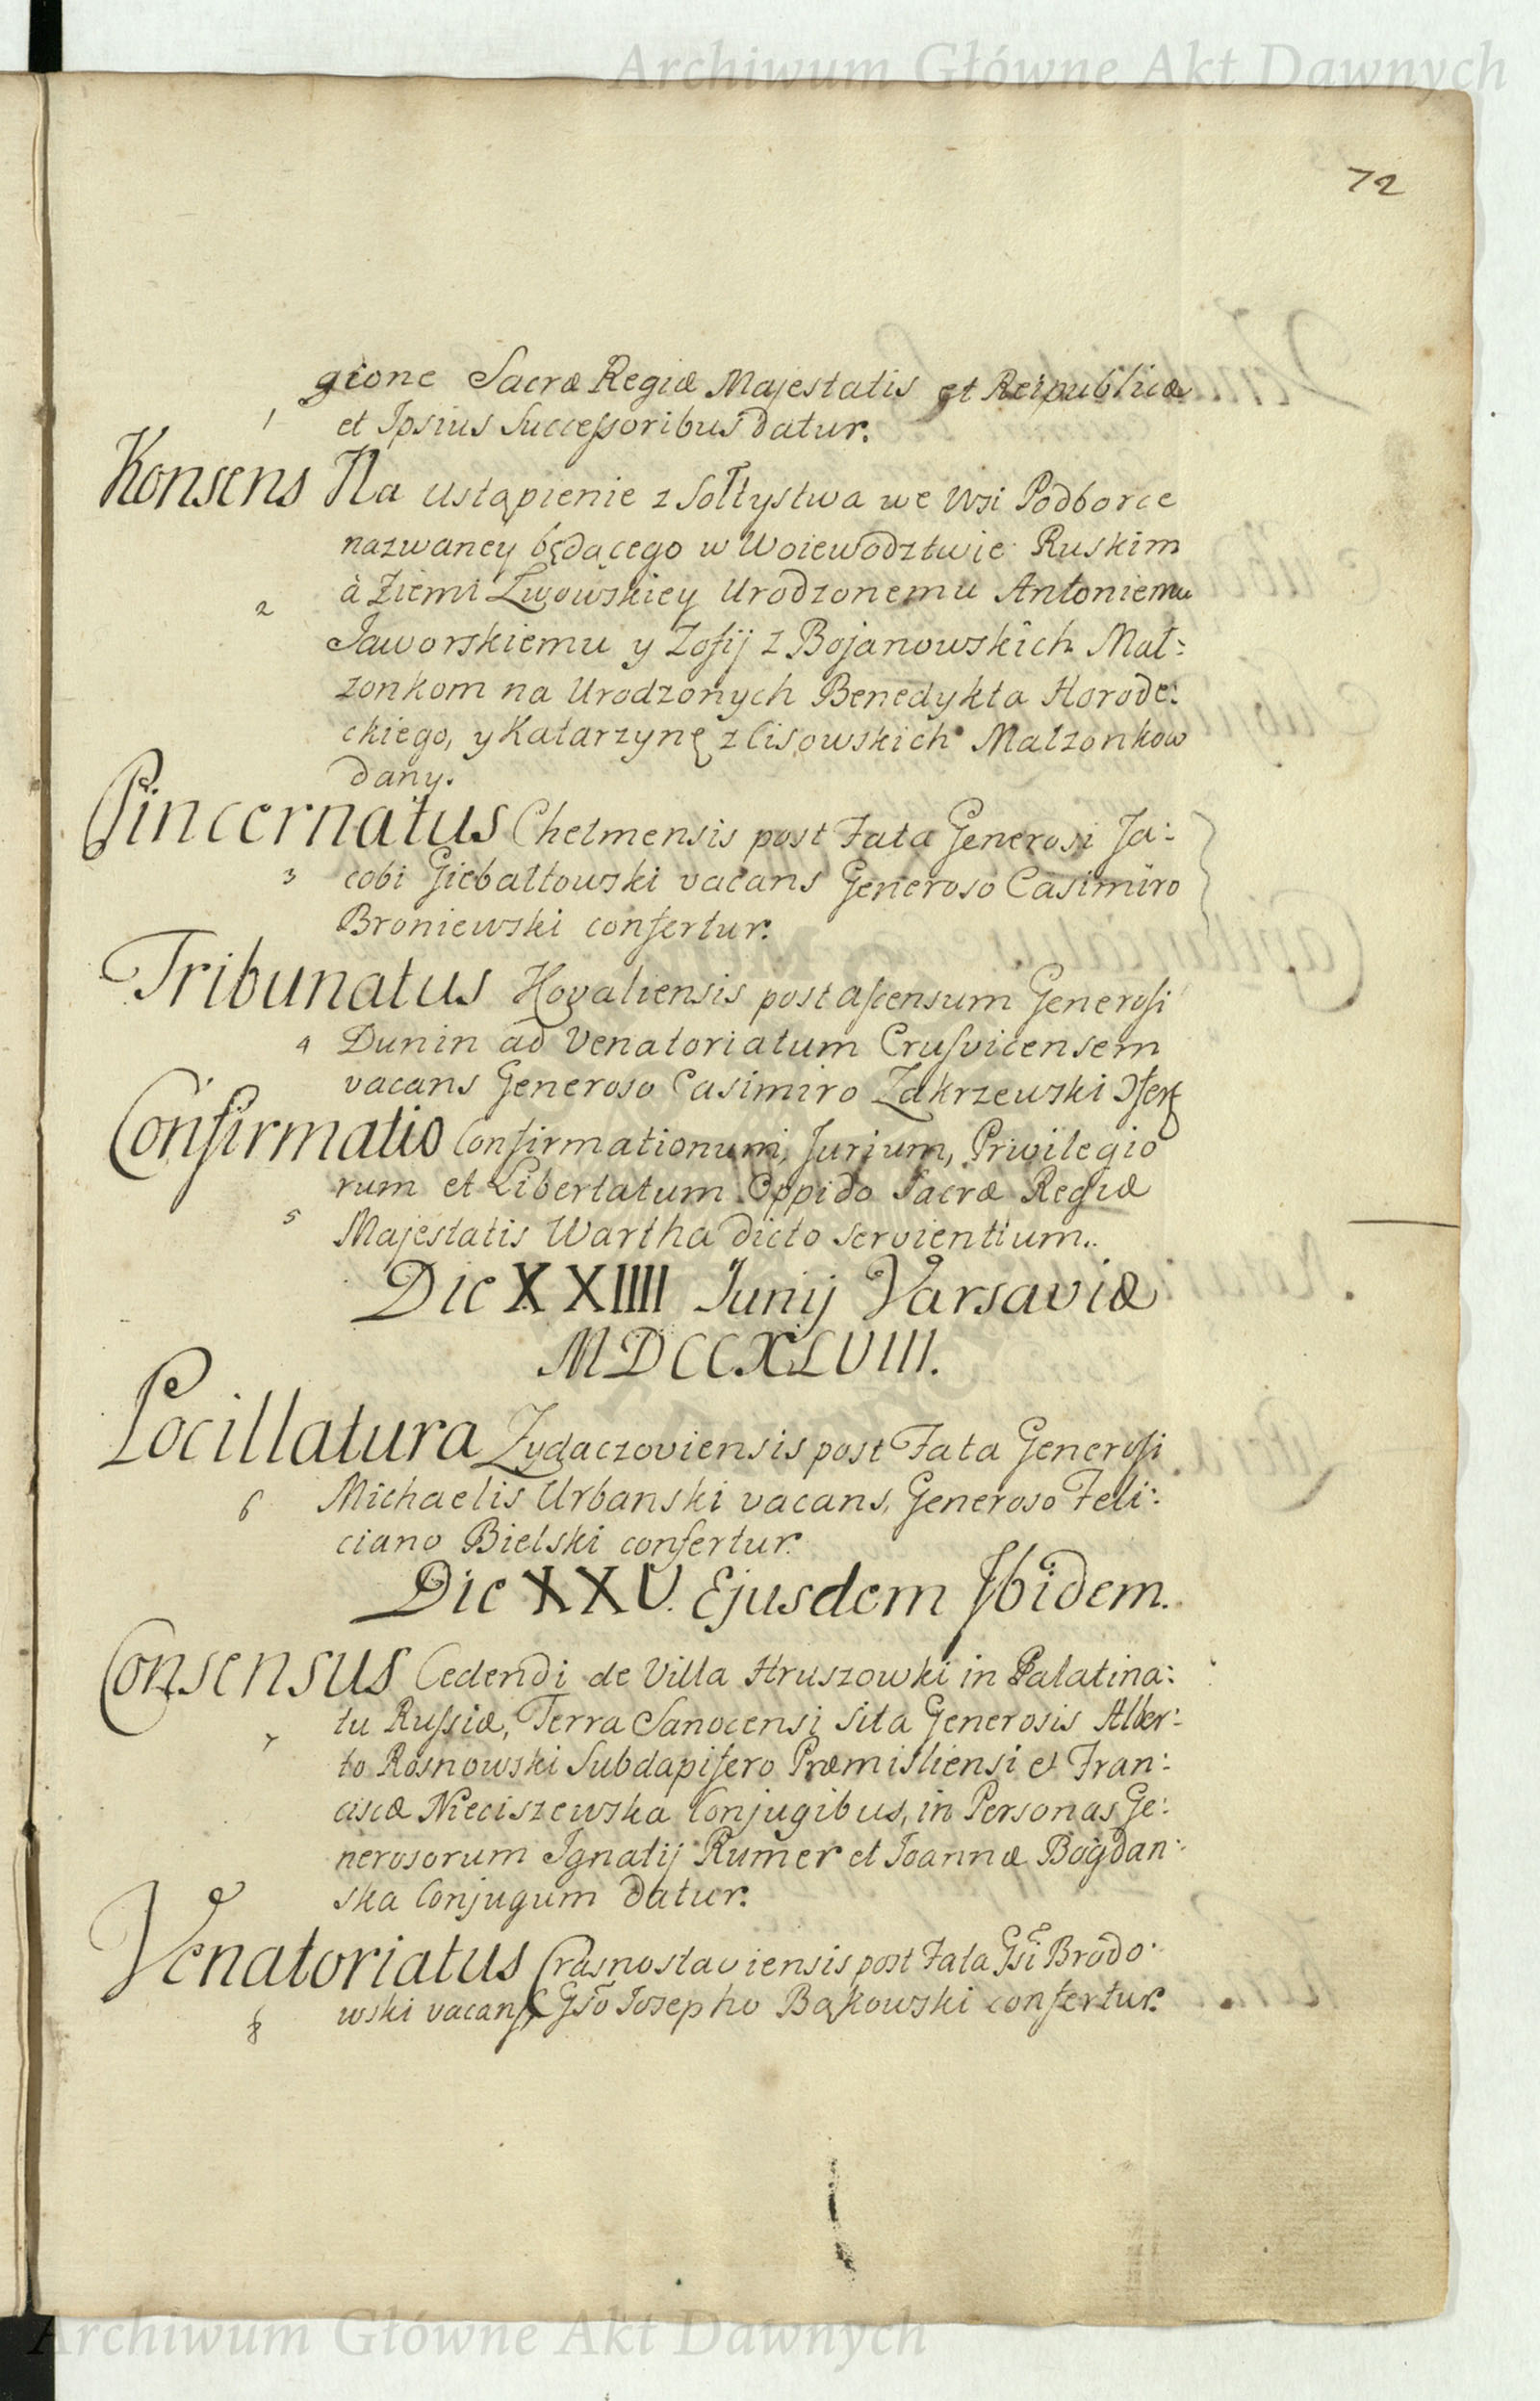 Archiwum Główne Akt Dawnych
72
gione Sacræ Regiæ Majestatis et Reipublicæ
1 et Ipsius Successoribus datur.
Konsens Na ustąpienie z Sołtystwa we Wsi Podborce
nazwaney będącego w Woiewodztwie Ruskim
2 à Ziemi Lwowskiey Urodzonemu Antoniemu
Jaworskiemu y Zofij z Bojanowskich Mał:
zonkom na Urodzonych Benedykta Horode:
ckiego, y Katarzynę z Lisowskich Małzonkow
dany.
Pincernatus Chelmensis post Fata Generosi Ja:
3 cobi Giebałtowski vacans Generoso Casimiro
Broniewski confertur.
Tribunatus Hovaliensis post ascensum Generosi
4 Dunin ad Venatoriatum Crusvicensem
vacans Generoso Casimiro Zakrzewski
Confirmatio Confirmationum, Jurium, Privilegio
rum et Libertatum Oppido Sacræ Regiæ
5 Majestatis Wartha dicto servientium.
Die XXIIII Junij Varsaviæ
MDCCXLVIII.
Pocillatura Zydaczoviensis post Fata Generosi
6 Michaelis Urbanski vacans, Generoso Feli:
ciano Bielski confertur.
Die XXV. Ejusdem Ibidem.
Consensus Cedendi de Villa Hruszowki in Palatina:
7 tu Russiæ, Terra Sanocensi sita Generosis Alber:
to Rosnowski Subdapifero Præmisliensi et Fran:
ciscæ Nieciszewska Conjugibus, in Personas Ge:
nerosorum Ignatij Rumer et Joannæ Bogdan:
ska Conjugum datur.
Venatoriatus Crasnostaviensis post Fata Gsi Brodo:
8 wski vacans Gso Josepho Bąkowski confertur.
Archiwum Główne Akt Dawnych